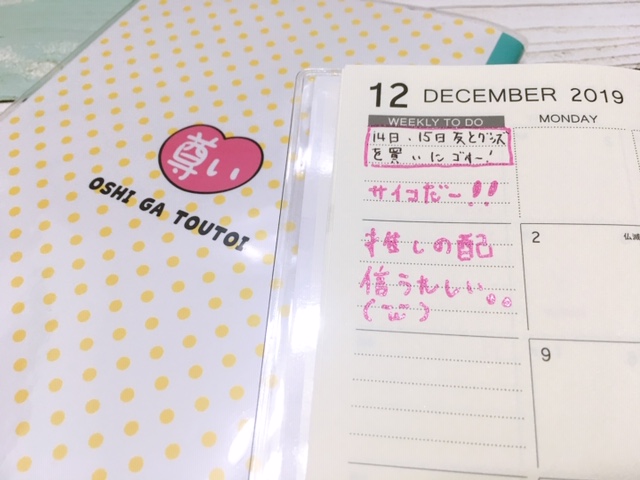 尊い
OSHI GA TOUTOI
12 DECEMBER 2019
WEEKLY TO DO
MONDAY
14日・15日 友とグッズ
を買いにゴオー!
サイコだー!!
推しの配
信うれしい。。
2
仏滅
9